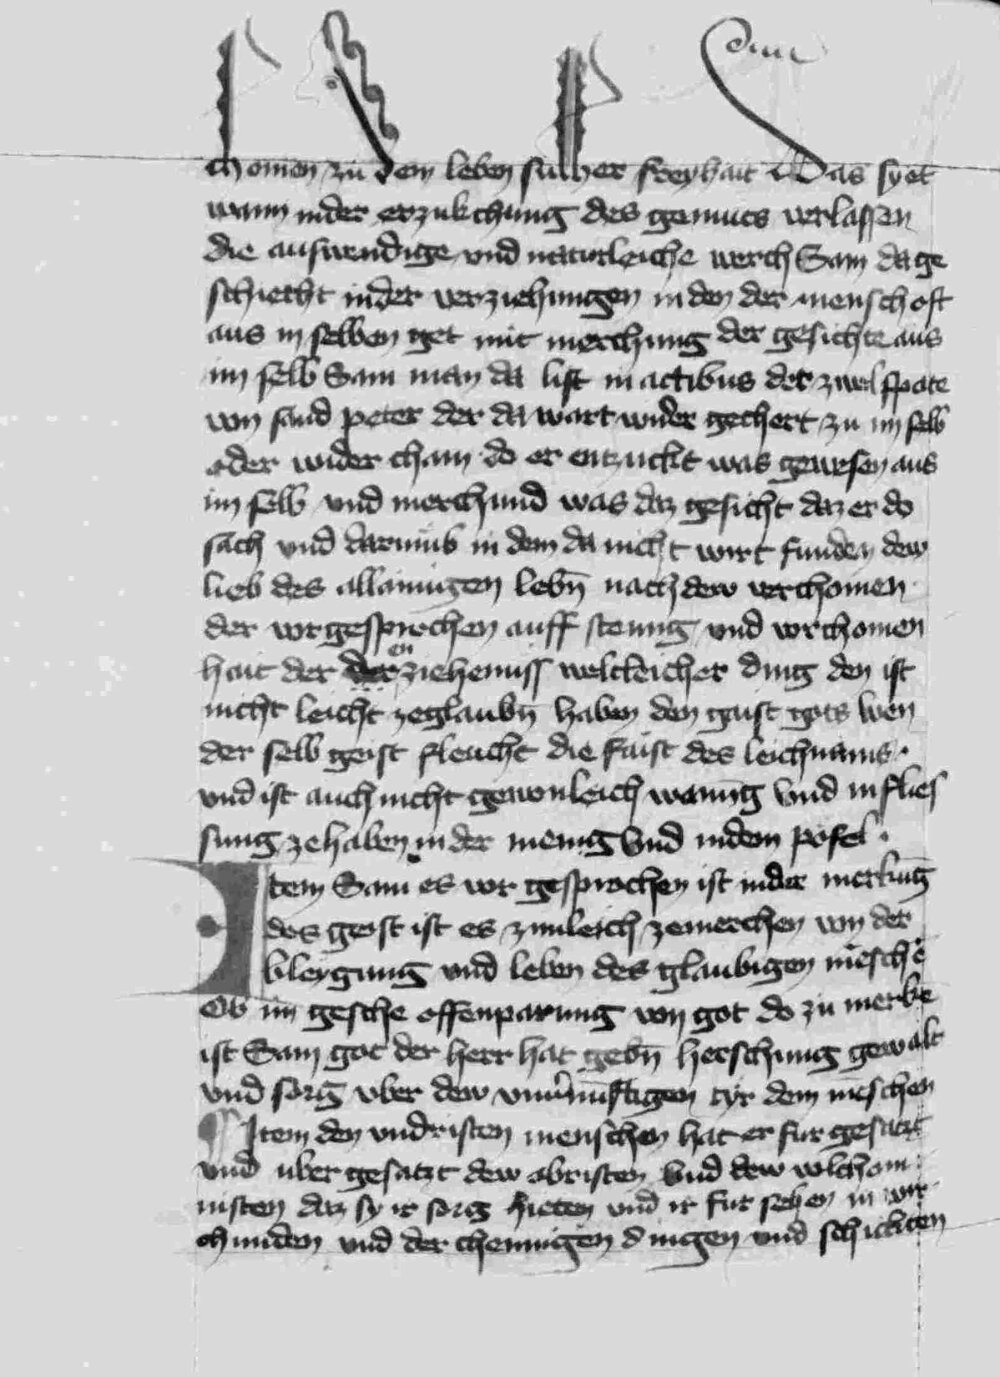 chomen zu dem leben sulher freyhait Das syet
wann in der erzukchung des gemuets verlassen
die auswendige und naturleiche werch Sam da ge
schiecht in der verziehungen in den der mensch oft
aus im selben get mit merchung der gesichte aus
im selb Sam man da list in actibus der zwelfpote
von sand peter der da wart wider gechert zu im selb
oder wider cham do er entzuckt was gewesen aus
im selb und merchund was daz gesicht daz er do
sach und darumb in dem da nicht wirt funden dew
lieb des allainigen lebn̄ nach dew verchomen
der vorgesprochen auff steung und vorchomen
hait der en ziehenuss weltleicher ding den ist
nicht leicht zeglaubn̄ haben den gaist gots wen
der selb geist fleucht die faist des leichnams .
und ist auch nicht gewonleich wonūg und in flies
sung ze haben in der menig und in dem pofel .
Item Sam es vor gesprochen ist in der merkūg
des geist ist es zimleich zemerchen von der
und leben des glaubigen mēschē
Ob im gesche offenparung von got do zu merke
ist Sam got der herr hat gebn̄ herschung gewalt
und sorg uber dew unvernūftigen tyr dem mēschen
Item den undristen menschen hat er fur gesatzt
und uber gesatzt dew obristen und dew volchom
nisten daz sy ir sorg hieten und ir fur sehen in
chunden und der chemnigen dingen und schickten